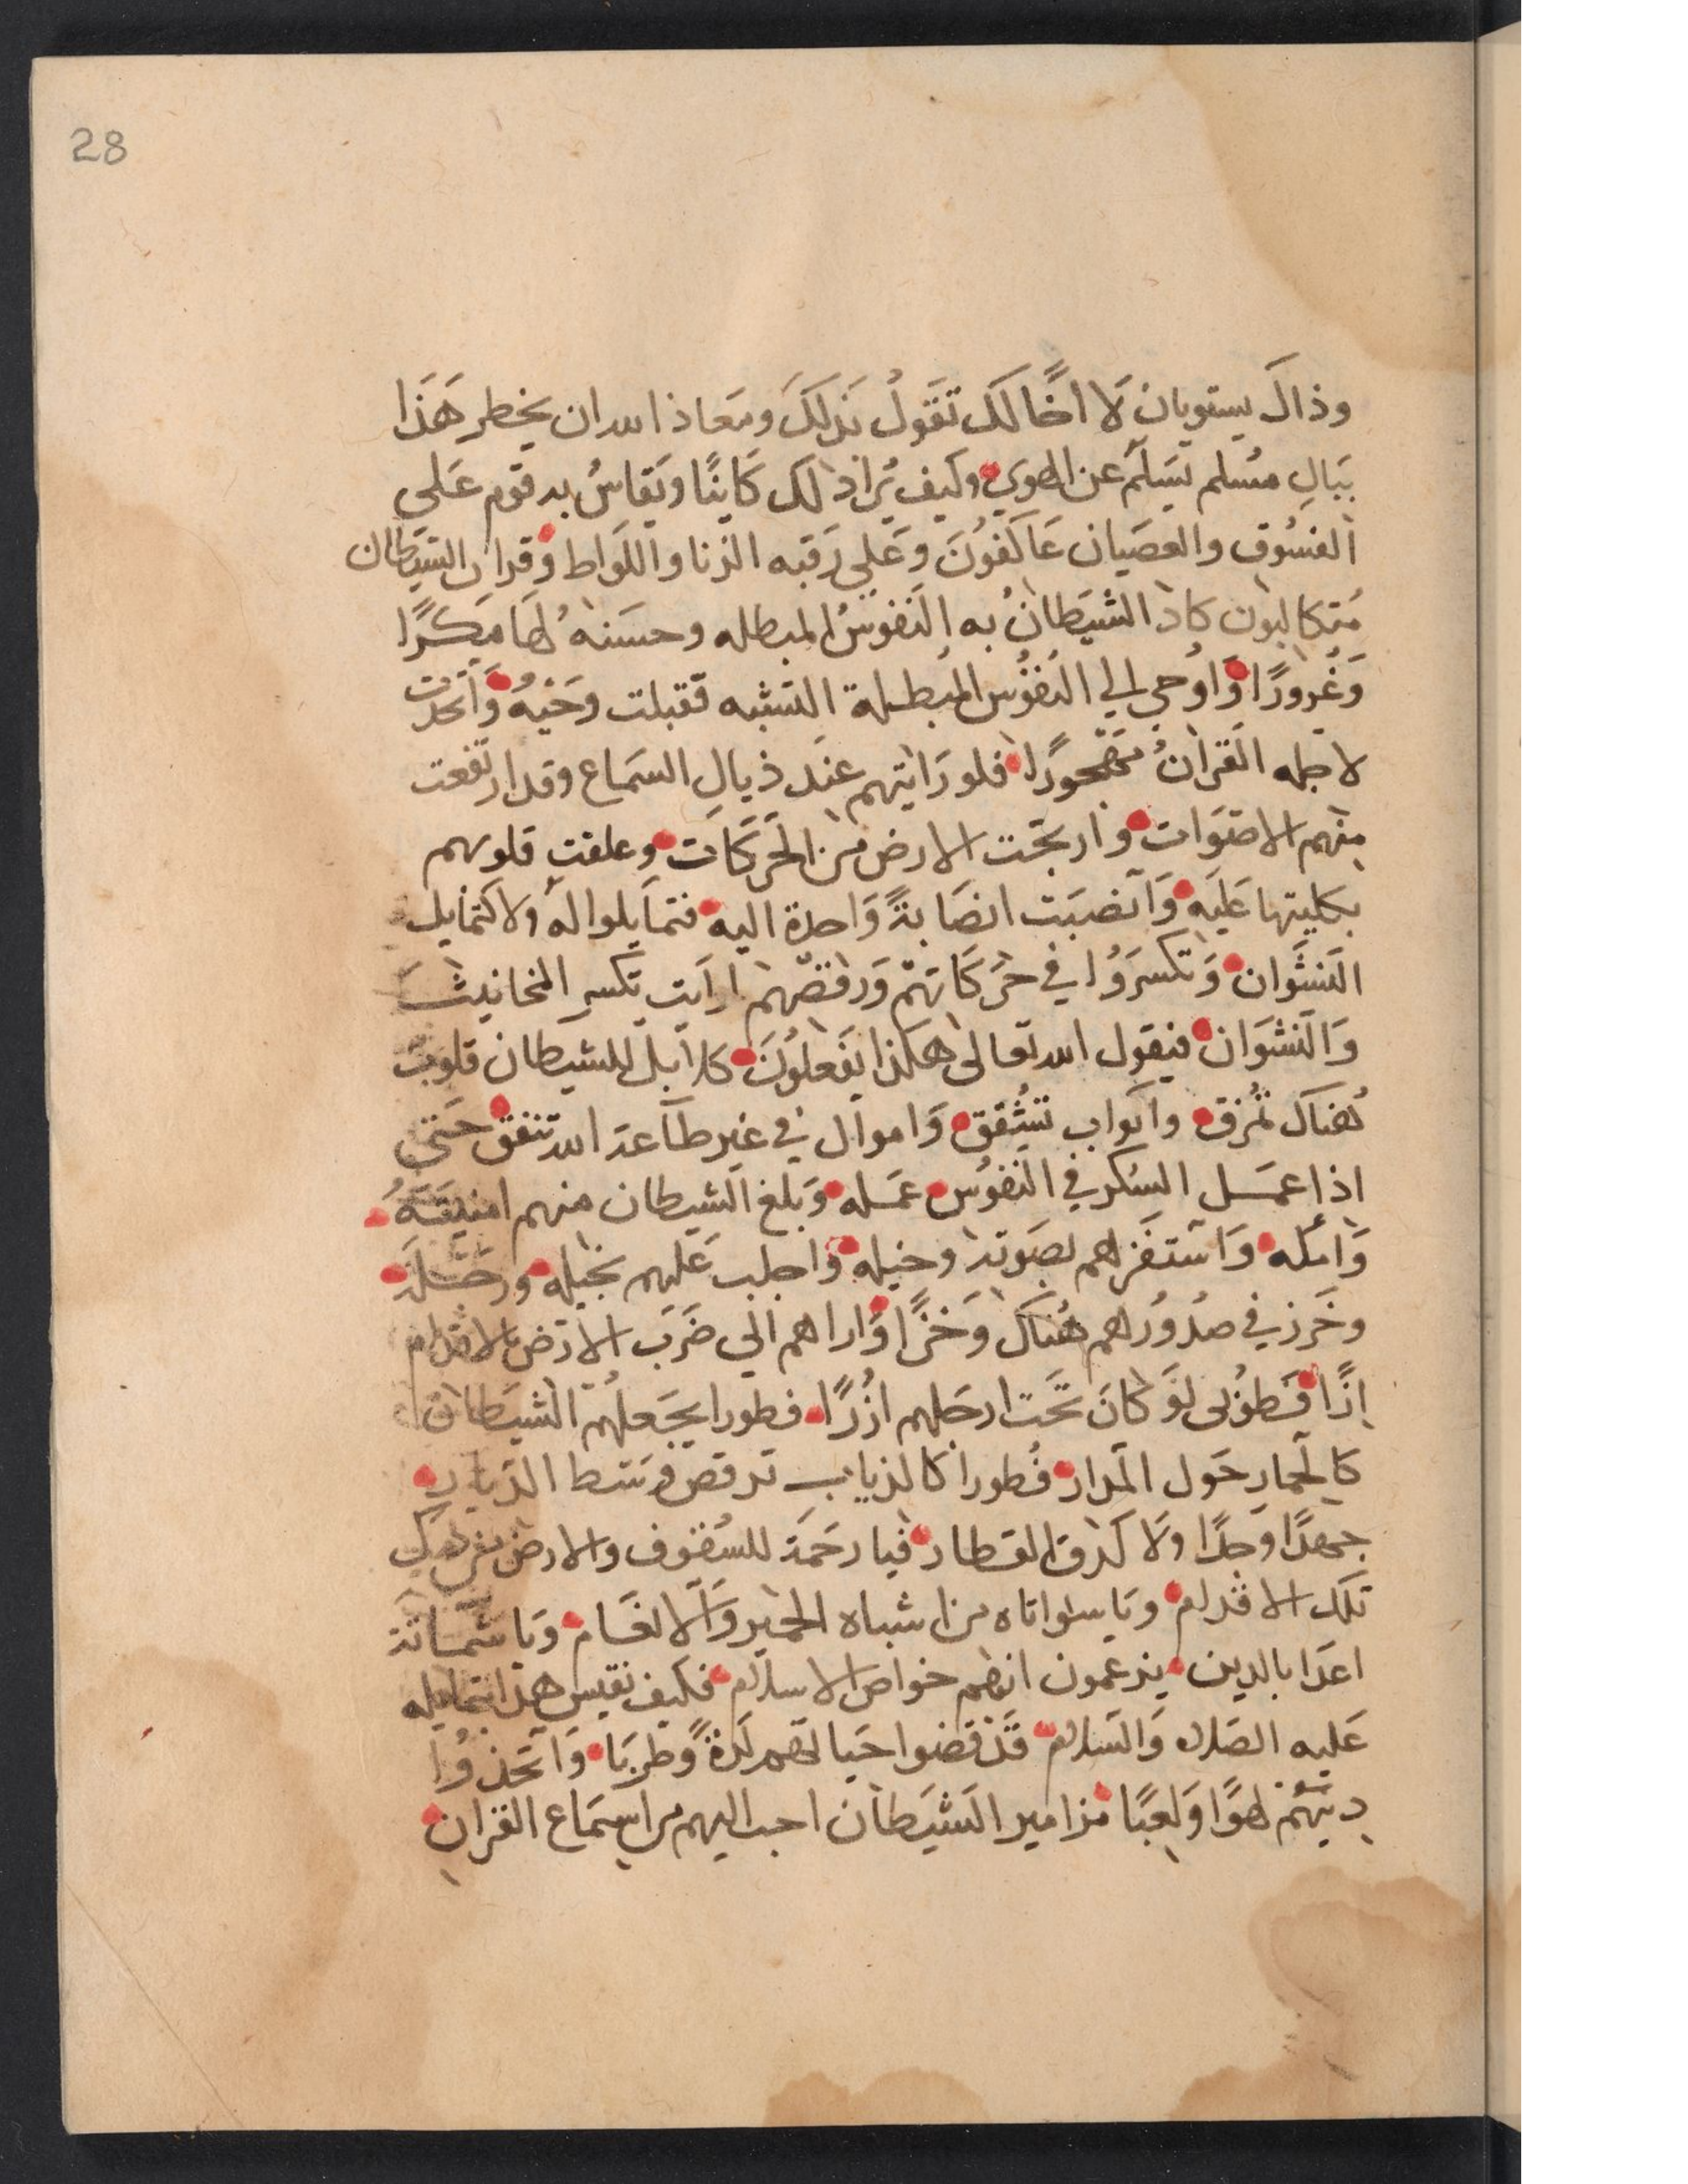 28
وذاك يستويان لا اخًالك تقول بذلك ومعاذ الله ان يخطر هَذَا
ببالِ مسُلم يَسلَم عن الهوي وكيف يُرا ذلك كَاينًا ويَقاسُ به قوم عَلى
الفسُوق والعصَيان عَاكفوُنَ وَعَلي رَقبه الزنا واللوَاط وَقران الشيَطان
مُتكالبون كادَ الشيَطانُ به النَفوسُ المبطله وحسَنهُ لهَا مَكرًا
وَغُرورًا وَاوُحي الي النَفوُس المُبطلة التشبه فقبلت وحَيَهُ وَاتخدت
لاجله القرانُ مَهجورًا فلو رَايتهم عنَد ذيالِ السمَاع وقد ارتفعت
مِنهم الاصَوات وارتجَت الارض من الحَركَات وعلقت قلوبهم
بكليتها عَليَه وَانصبَت انصَابةً وَاحدة اليه فتمايلوا له ولا كتمايل
النشوان وَتكسرَوُا في حَركَاتهَم وَرقصَهم ارايت تكسر المخانيث
وَالنشوَان فيقول الله تعالى هكذا يفَعلوُنَ كلا بل للشيطان قلوب
هُناك تمُزق واثواب تشُقق وَاموال في غير طاعة الله تنفق حَتي
اذا عمَل السُكر في النَفوُس عمَله وَبلغ الشيطان منهم امنيتَهُ
وَامَله وَاستفَزهم بصَوته وخيله وَاجلب عَليهم بخيله ورجَله
وخَرز في صدُوُرهم هُناك وَخزًا وَاراهم الي ضَربَ الارض بالاقدام
ازًا فطوُبى لوَ كانَ تحَت ارجَلهم ازُرًا فطورا يجَعلهُم الشيَطان
كالحمَار حَول المدَار فطورا كالذباب ترقص وسَط الديار
جهدًا وجدًا ولا كدق القطار فيا رحَمة للسُقوف والارض من دك
تلك الاقدام ويَا سواتاه من اشباه الحمير وَالانعَام ويَا شَماتة
اعدَا بالدين يزعمون انهم خواص الاسلام فكيف نقيس هَذا بتمايله
عَليه الصَلاه وَالسَلام قد قضوا حيَاتهم لذةً وطربَا وَاتخذوُا
دينهُم لهوًا وَلعبًا مزامير الشَيَطان احب اليهم من اسِتمَاع القران